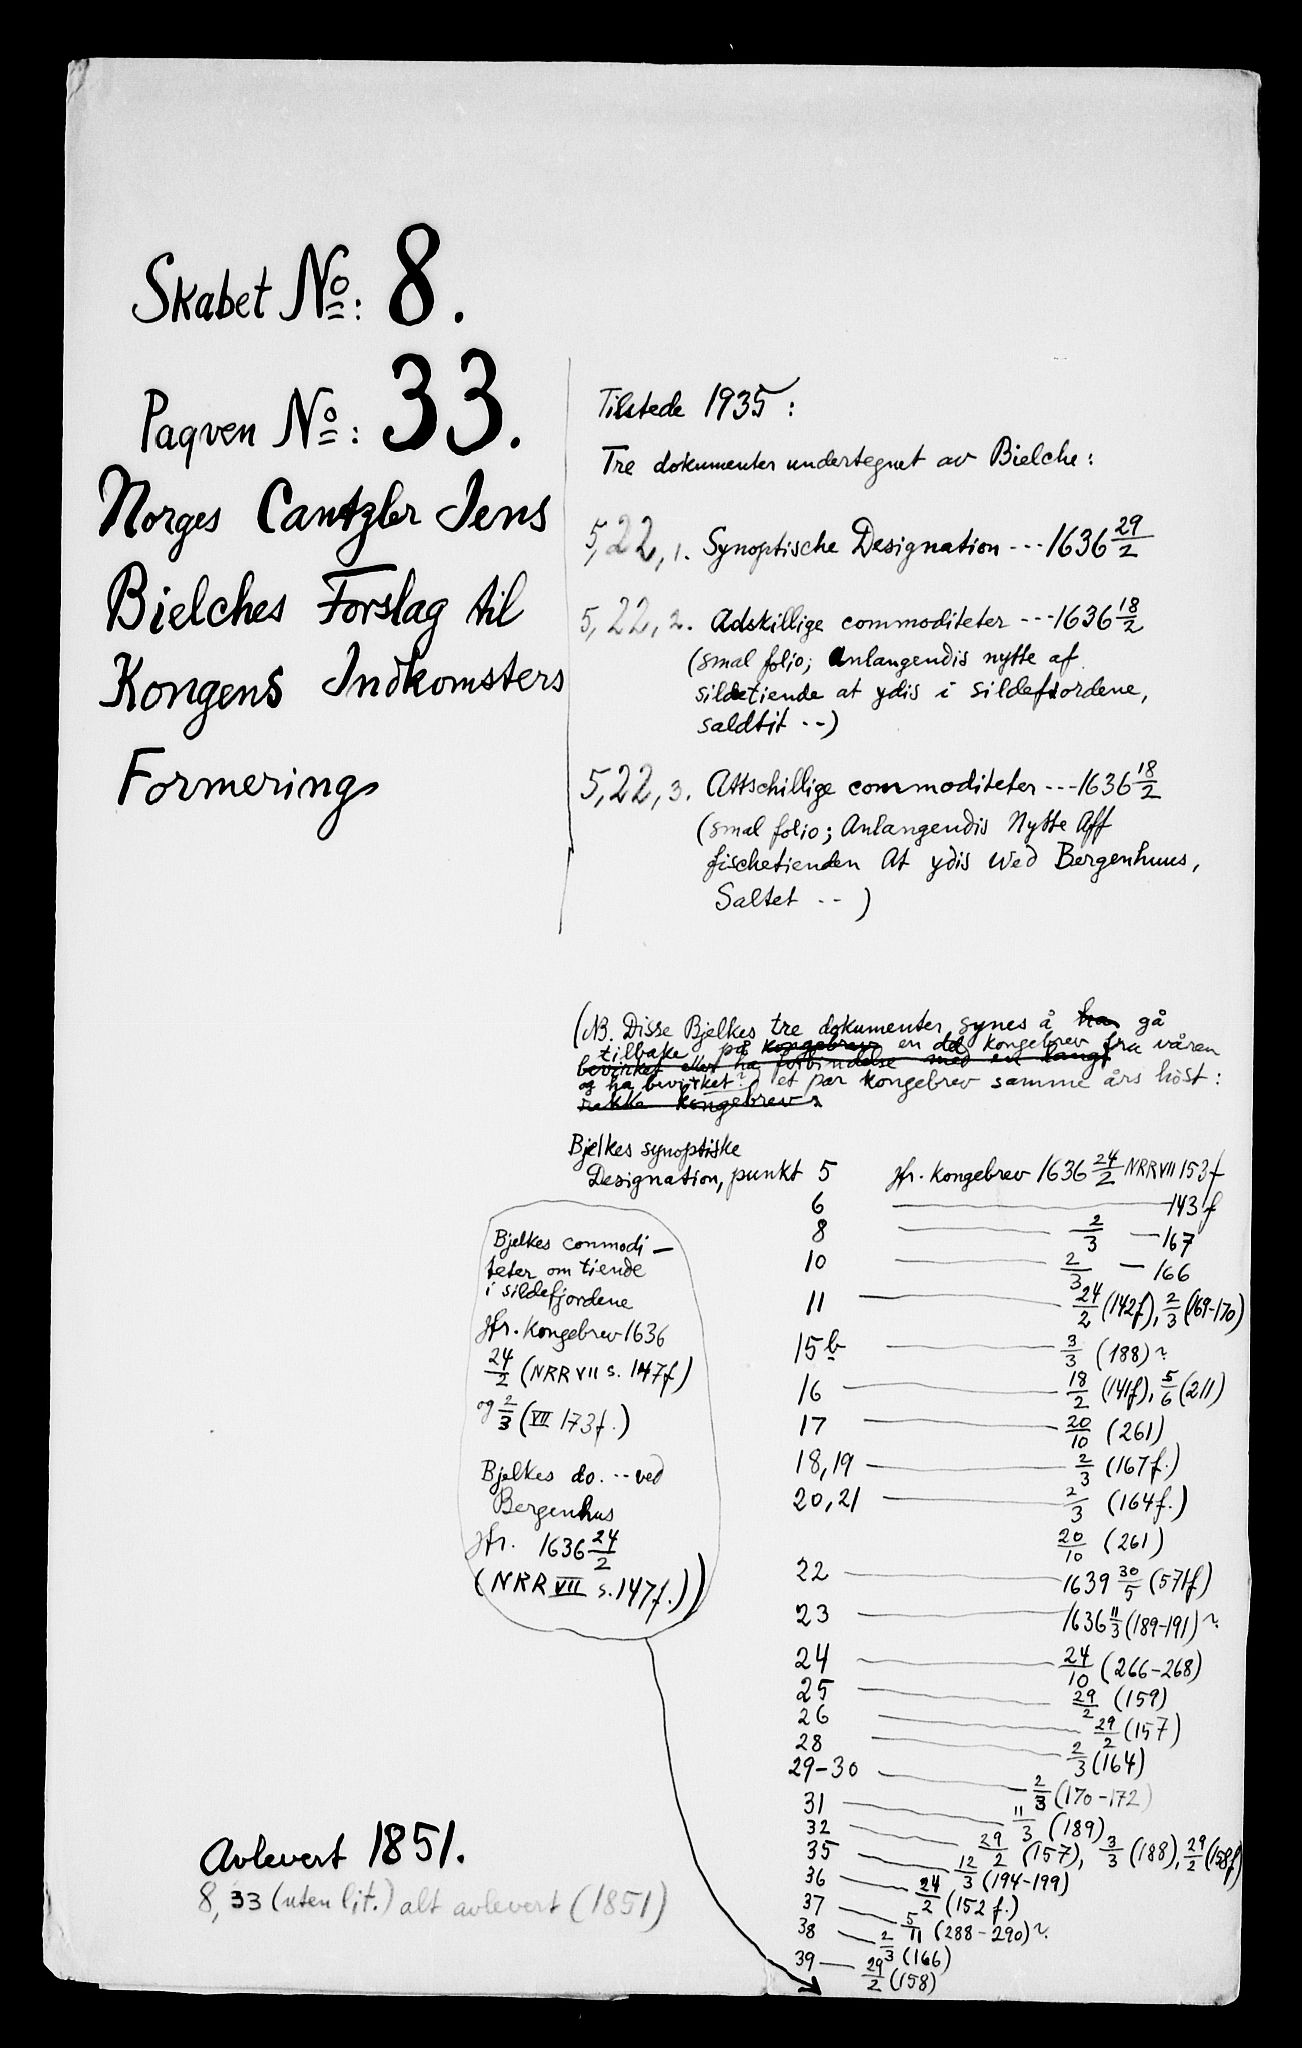 Skabet No: 8.
Paqven No: 33.
Norges Cantzler Jens
Bielches Forslag til
Kongens Indkomsters
Formering
Tilstede 1935:
Tre dokumenter undertegnet av Bielche:
5,22,1. Synoptische Designation --- 1636 29/2
5,22,2. Adskillige commoditeter --- 1636 18/2
(smal folio; Anlangendis nytte af
sildetiende at ydis i sildefiordene,
saldtit --)
5,22,3. Attschillige commoditeter --- 1636 18/2
(smal folio; Anlangendis Nytte Aff
fischetienden At ydis wed Bergenhuus,
Saltet -- )
(NB. Disse Bjelkes tre dokumenter synes å ha gå
tilbake på kongebrev en del kongebrev fra våren
bevirket eller ha forbindelse med en lang
og ha bevirket? et par kongebrev samme års höst:
rekke kongebrev
Bjelkes synoptiske
Designation, punkt 5 jfr. kongebrev 1636 24/2 NRR VII 153f
6 — 143f
8 — 2/3 — 167
10 — 2/3 — 166
11 — 24/2 (142f), 2/3 (169-170)
15b — 3/3 (188)?
16 — 18/2 (141f), 5/6 (211)
17 — 20/10 (261)
18,19 — 2/3 (167f.)
20,21 — 2/3 (164f.)
20/10 (261)
22 — 1639 30/5 (571f)
23 — 1636 11/3 (189-191)?
24 — 24/10 (266-268)
25 — 29/2 (159)
26 — 29/2 (157)
28 — 2/3 (164)
29-30 — 2/3 (170-172)
31 — 11/3 (189)
32 — 29/2 (157), 3/3 (188), 29/2 (158f)
35 — 12/3 (194-199)
36 — 24/2 (152f.)
37 — 5/11 (288-290)?
38 — 2/3 (166)
39 — 29/2 (158)
Bjelkes commodi-
teter om tiende
i sildefjordene
jfr. kongebrev 1636
24/2 (NRR VII s. 147f)
og 2/3 (VII 173f.)
Bjelkes do. --- ved
Bergenhus
jfr. 1636 24/2
(NRR VII s. 147f.))
Avlevert 1851.
8, 33 (uten lit.) alt avlevert (1851)